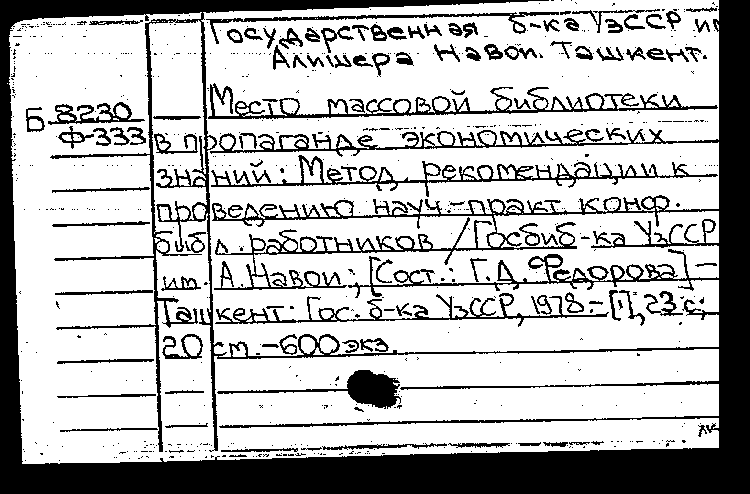 Государственная б-ка УзССР им
Алишера Навои. Ташкент.
Б 8230
Ф-333
Место массовой библиотеки
в пропаганде экономических
знаний: Метод. рекомендации к
проведению науч.-практ. конф.
библ. работников / Госбиб-ка УзССР
им. А. Навои; [Сост.: Г.Д. Федорова] –
Ташкент: Гос. б-ка УзССР, 1978.– [1], 23 с;
20 см. – 600 экз.